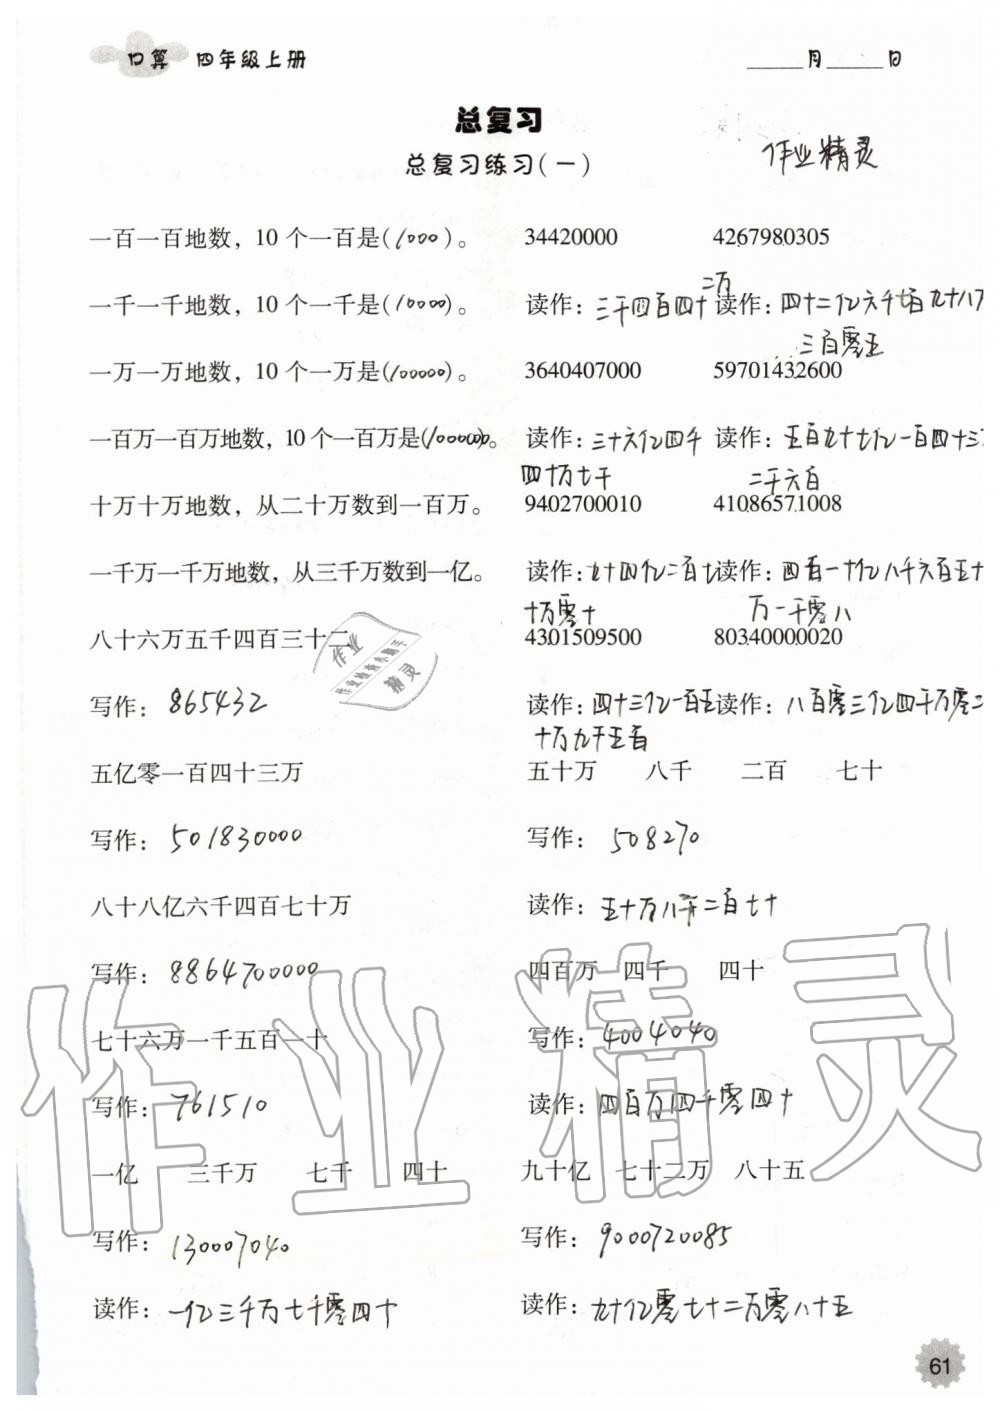 口算 四年级上册
_____月_____日
总复习
总复习练习(一)
作业精灵
一百一百地数，10 个一百是(1000)。
34420000 4267980305
一千一千地数，10 个一千是(10000)。
读作：三千四百四十二万
读作：四十二亿六千七百九十八万三百零五
一万一万地数，10 个一万是(100000)。
3640407000 59701432600
一百万一百万地数，10 个一百万是(
读作：三十六亿四千四十万七千
读作：五百九十七亿一百四十三万二千六百
十万十万地数，从二十万数到一百万。
9402700010 41086571008
一千万一千万地数，从三千万数到一亿。
读作：九十四亿二百七十万零十
读作：四百一十亿八千六百五十万一千零八
八十六万五千四百三十二
4301509500 80340000020
写作：865432
读作：四十三亿一百五十万九千五百
读作：八百零三亿四千万零二
五亿零一百四十三万
五十万 八千 二百 七十
写作：501830000
写作：508270
八十八亿六千四百七十万
读作：五十万八千二百七十
写作：8864700000
四百万 四千 四十
七十六万一千五百一十
写作：4004040
写作：761510
读作：四百万四千零四十
一亿 三千万 七千 四十
九十亿 七十二万 八十五
写作：130007040
写作：9000720085
读作：一亿三千万七千零四十
读作：九十亿零七十二万零八十五
作业精灵
61